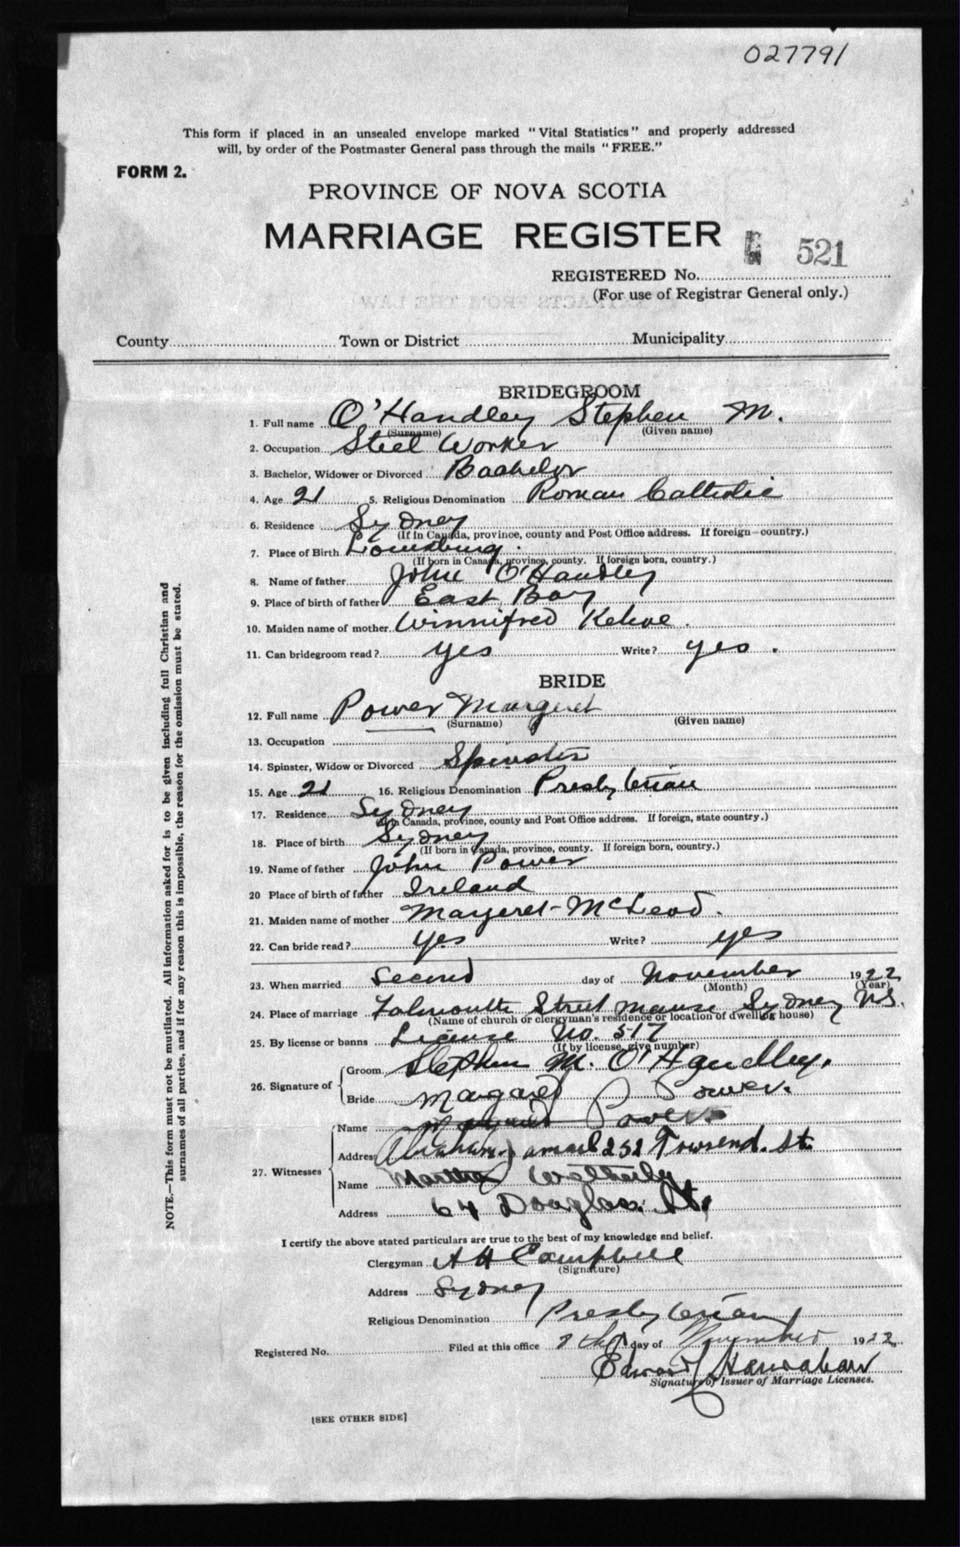 027791
This form if placed in an unsealed envelope marked "Vital Statistics" and properly addressed
will, by order of the Postmaster General pass through the mails "FREE."
FORM 2.
PROVINCE OF NOVA SCOTIA
MARRIAGE REGISTER
521
REGISTERED No.
(For use of Registrar General only.)
County Town or District Municipality
BRIDEGROOM
1. Full name O'Handley Stephen M.
(Surname) (Given name)
2. Occupation Steel Worker
3. Bachelor, Widower or Divorced Bachelor
4. Age 21 5. Religious Denomination Roman Catholic
6. Residence Sydney
(If in Canada, province, county and Post Office address. If foreign—country.)
7. Place of Birth Louisburg.
(If born in Canada, province, county. If foreign born, country.)
8. Name of father John O'Handley
9. Place of birth of father East Bay
10. Maiden name of mother Winnifred Kehoe.
11. Can bridegroom read? yes Write? yes.
BRIDE
12. Full name Power Margaret
(Surname) (Given name)
13. Occupation
14. Spinster, Widow or Divorced Spinster
15. Age 21 16. Religious Denomination Presbyterian
17. Residence Sydney
(If in Canada, province, county and Post Office address. If foreign, state country.)
18. Place of birth Sydney
(If born in Canada, province, county. If foreign born, country.)
19. Name of father John Power
20 Place of birth of father Ireland
21. Maiden name of mother Margeret McLeod.
22. Can bride read? yes Write? yes
23. When married second day of November 1922
(Month) (Year)
24. Place of marriage Falmouth Street Manse Sydney NS.
(Name of church or clergyman's residence or location of dwelling house)
25. By license or banns License No. 517
(If by license, give number)
26. Signature of
Groom Stephen M. O'Handley.
Bride Margaret Power.
27. Witnesses
Name Margaret Power
Address Abraham 252 Townsend. St.
Name Martha
Address 64 Douglas St.
I certify the above stated particulars are true to the best of my knowledge and belief.
Clergyman A H Campbell
(Signature)
Address Sydney
Religious Denomination Presbyterian
Registered No. Filed at this office 8th day of November 1922
Edward
Signature of Issuer of Marriage Licenses.
[SEE OTHER SIDE]
NOTE.—This form must not be mutilated. All information asked for is to be given including full Christian and
surnames of all parties, and if for any reason this is impossible, the reason for the omission must be stated.